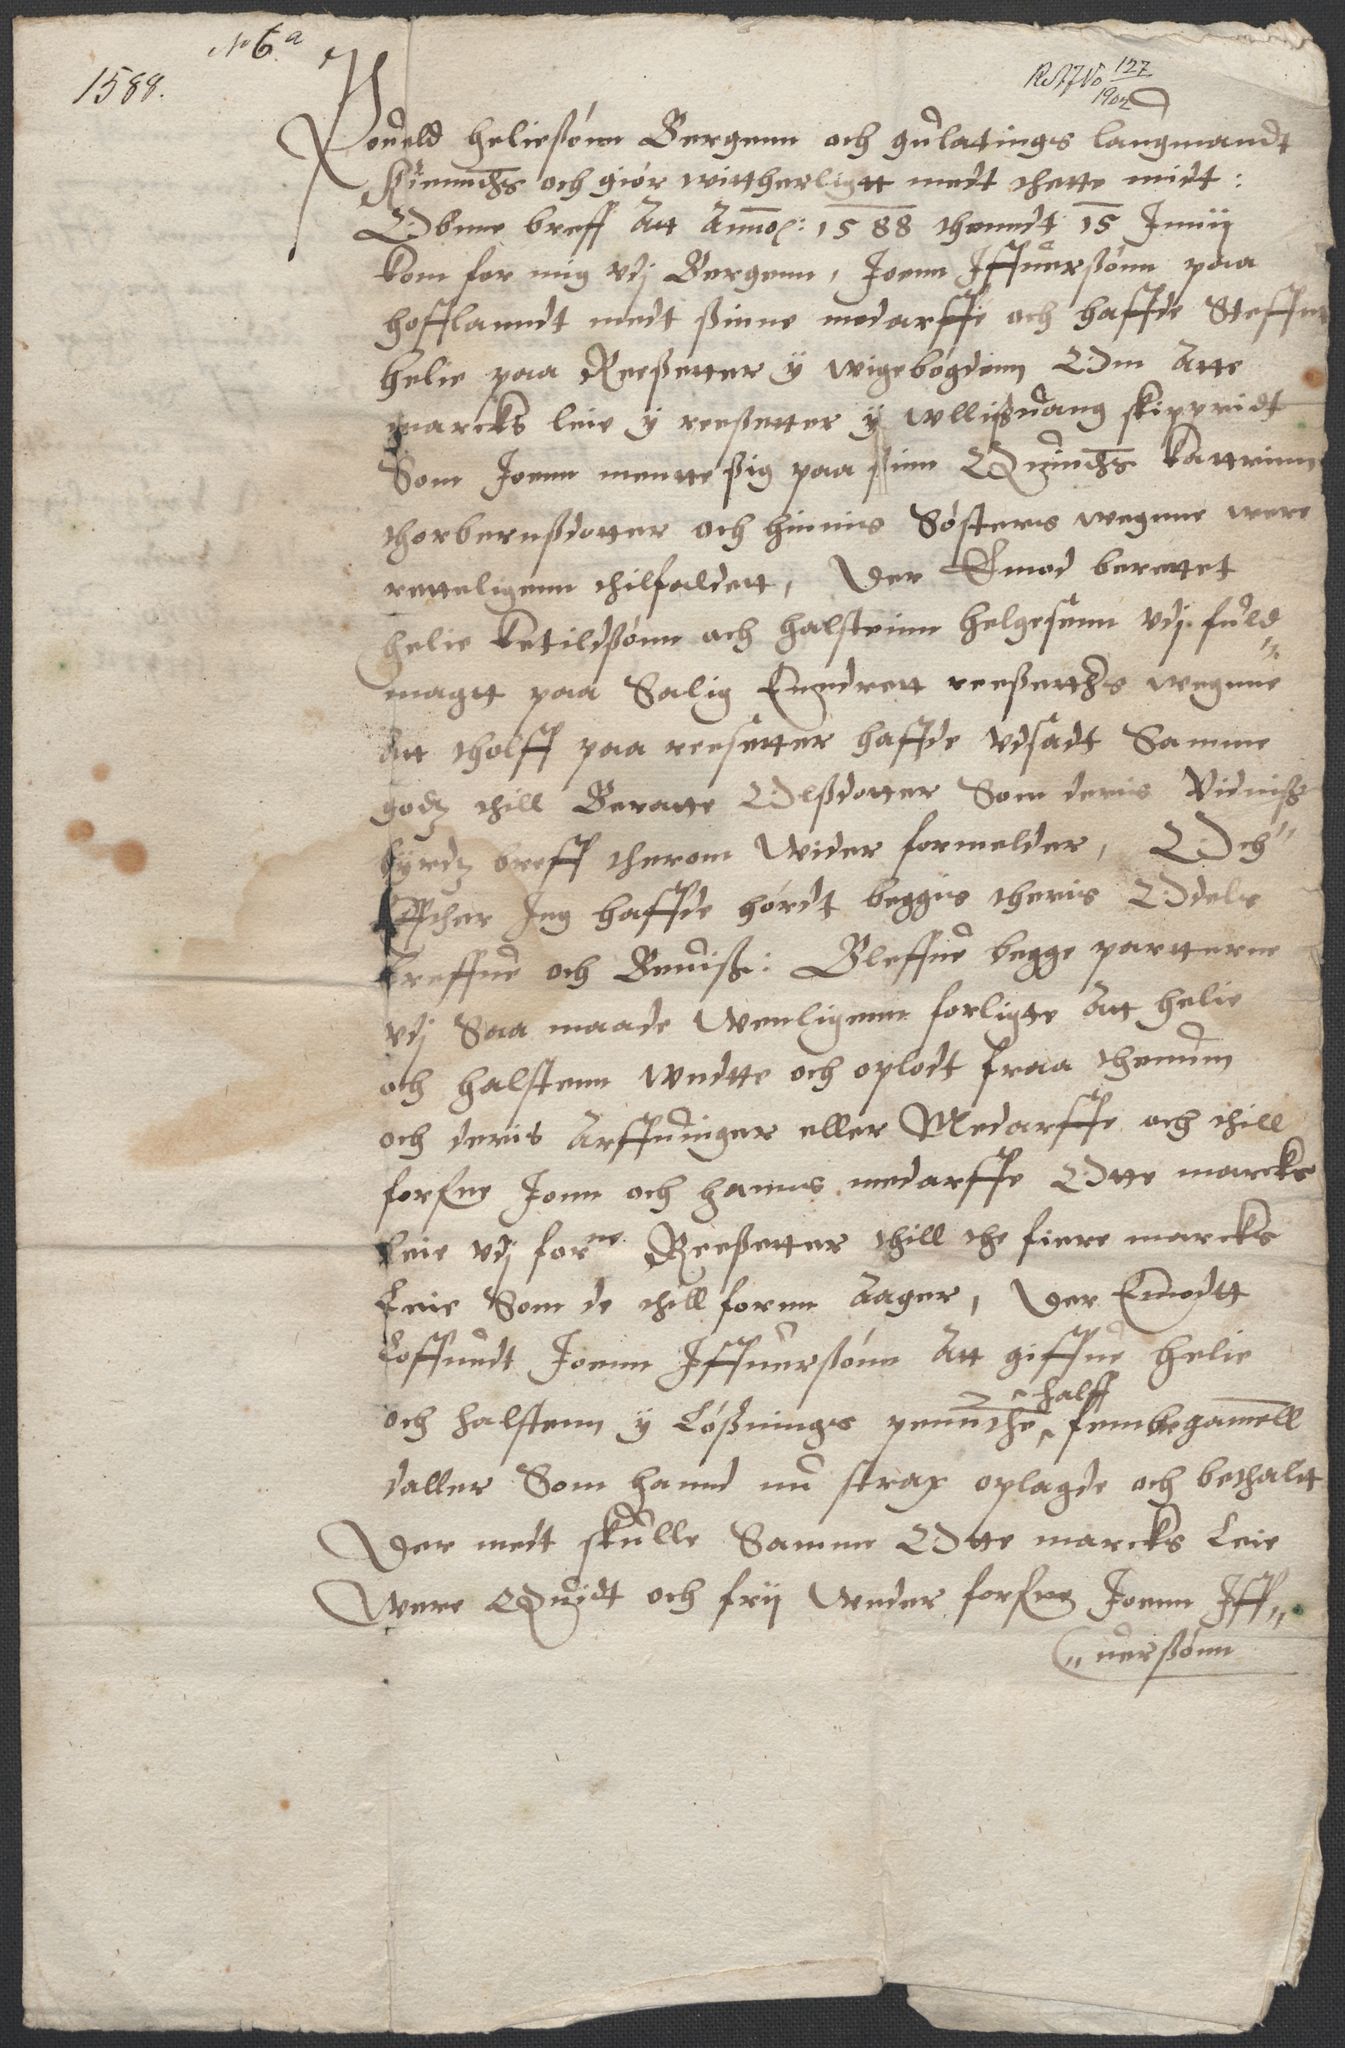 No 6.a
1588.
RA J No 127/1904
Poueld heliesønn Bergenn och gulatings laugmandt
Kienndis och giør wittherligtt medt thette midt:
Obnne breff Att Anno: 1588 thenndt 15 Junij
kom for mig vdj Bergenn, Joenn Iffuersønn paa
hofflanndt medt sinne medarffe och haffde Steffnt
helie paa Reessetter y wigebøgdenn Om Atte
marcks leie y reessetter y wllissuang skippridt
Som Joenn mentte sig paa sinn Quindis kattrinn
thorbernsdotter och hinnis Søsters wegnne were
retteligenn thilfaldett, Der Emod berettet
helie ketildsønn och halsteinn helgesenn vdj fuld„
magtt paa Salig Enndrett reessetthers wegnne
Att tholff paa reesetter haffde vdsadt Samme
godz thill Beratte Olsdotter Som deris Vidniss„
byrdz breff therom wider formelder, Och
Effther Jeg haffde hørdt beggis theris Odels
breffue och Beuiss: Bleffue begge partterne
vdj Saa maade Wenligenn forligte Att helie
och halstenn wndtte och oplodt fraa thennum
och deris Arffuinger eller Medarffe och thill
forsne Jonn och hannis medarffe Otte marcks
Leie vdj forne Reessetter thill the fiere marcks
Leie Som de thill forenn Aager, Der Emodtt
Loffuedt Joenn Iffuersønn Att giffue helie
och halstenn y Løssnings penninnge halff fembte gamell
daller Som hannd nu strax oplagde och bethalit
Der medt skulle Samme Otte marcks Leie
Were Quidt och frij Wnder forsne Joenn Iff„
„uerssønn